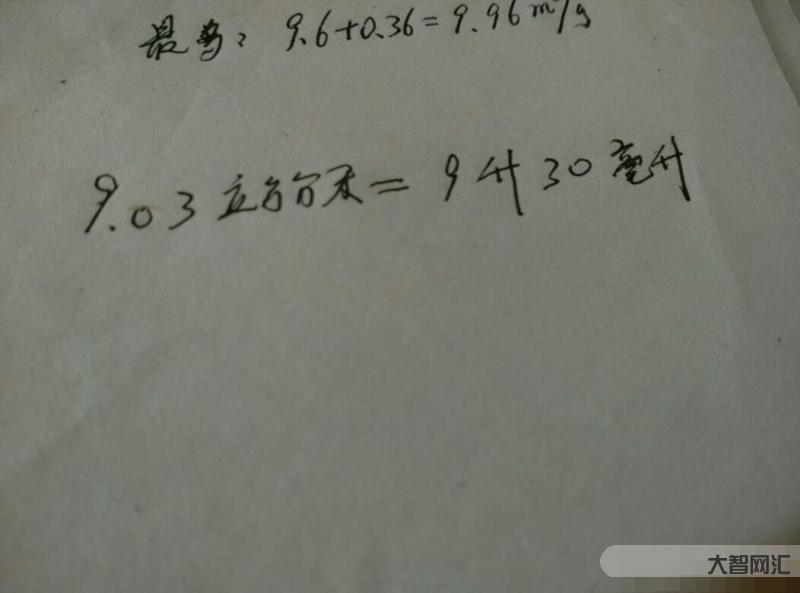 最多: 9.6+0.36=9.96m/g
9.03立方分米=9升30毫升
大智网汇